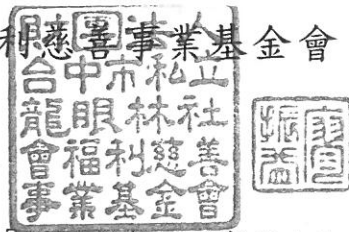 利慈善事業基金會
財團法人
台中市私立
龍眼林社
會福利慈善
事業基金會